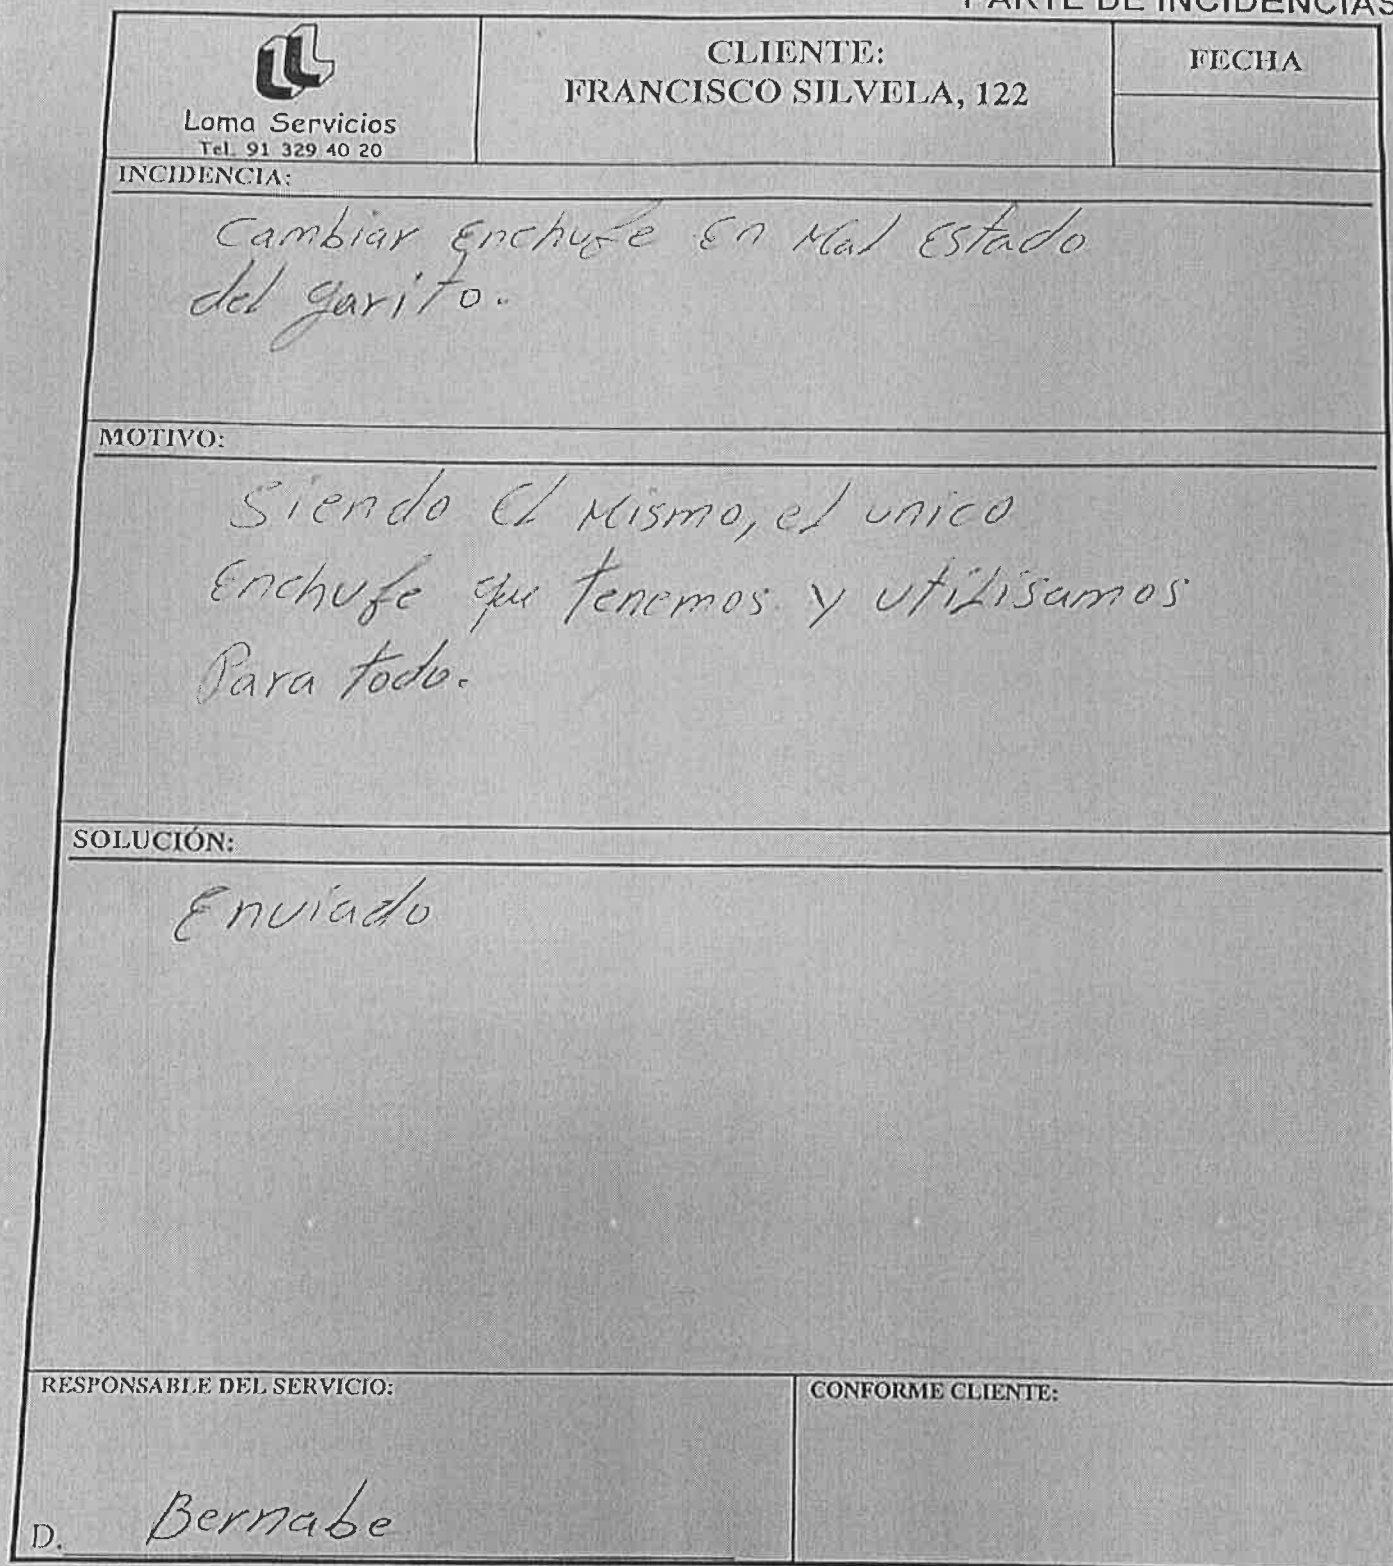 PARTE DE INCIDENCIAS
Loma Servicios
Tel. 91 329 40 20
CLIENTE:
FRANCISCO SILVELA, 122
FECHA
INCIDENCIA:
Cambiar Enchufe En Mal Estado
del garito.
MOTIVO:
Siendo El Mismo, el unico
Enchufe que tenemos y utilisamos
Para todo.
SOLUCIÓN:
Enviado
RESPONSABLE DEL SERVICIO:
CONFORME CLIENTE:
D. Bernabe